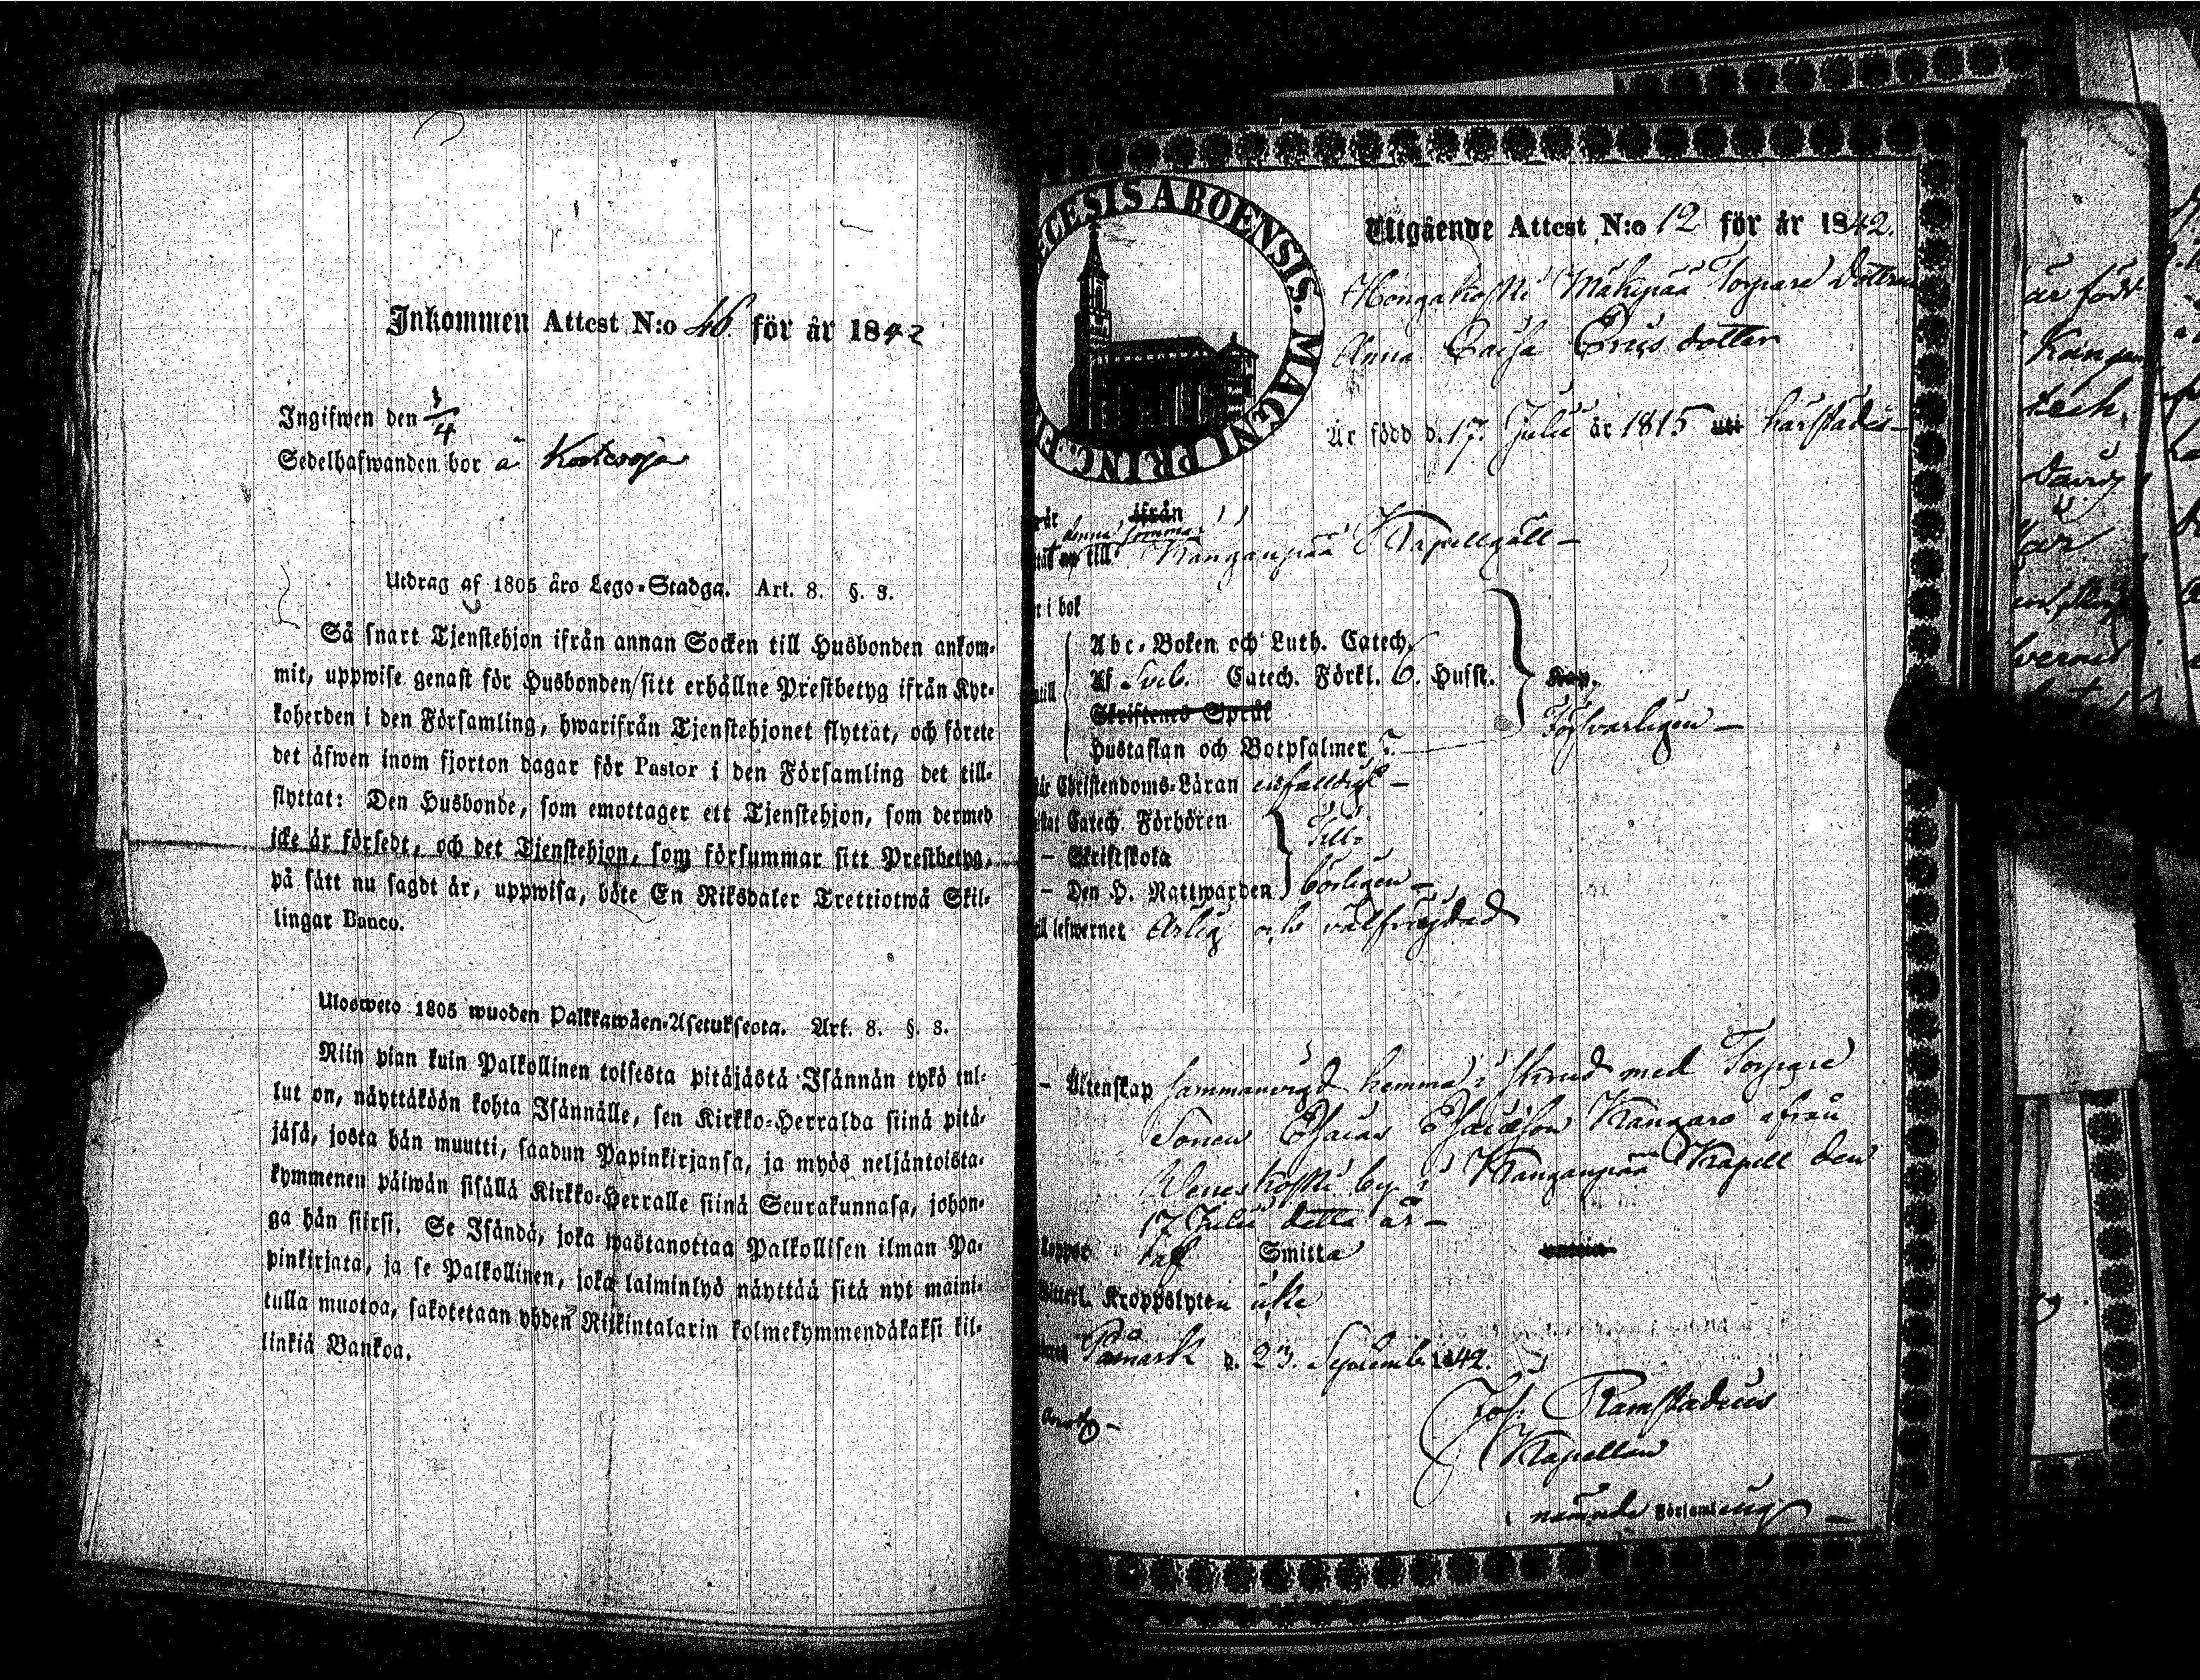 Inkommen Attest N:o 46 för år 1842
Ingifwen den 3/4
Sedelhafwanden bor å
Utdrag af 1805 års Lego-Stadga. Art. 8. §. 3.
Så snart Tjenstehjon ifrån annan Socken till Husbonden ankom-
mit, uppwise genast för Husbonden sitt erhållne Prestbetyg ifrån Kyr-
koherden i den Församling, hwarifrån Tjenstehjonet flyttat, och förete
det äfwen inom fjorton dagar för Pastor i den Församling det till-
flyttat: Den Husbonde, som emottager ett Tjenstehjon, som dermed
icke är försedt, och det Tjenstehjon, som försummar sitt Prestbetyg,
på sätt nu sagdt är, uppwisa, böte En Riksdaler Trettiotwå Skil-
lingar Banco.
Ulosweto 1805 wuoden Palkkawäen-Asetuksesta. Art. 8. §. 3.
Niin pian kuin Palkollinen toisesta pitäjästä Isännän tykö tul-
lut on, näyttäköön kohta Isännälle, sen Kirkko-Herralda siinä pitä-
jäsä, josta hän muutti, saadun Papinkirjansa, ja myös neljäntoista-
kymmenen päiwän sisällä Kirkko-Herralle siinä Seurakunnasa, johon-
ga hän siirsi. Se Isändä, joka wastanottaa Palkollisen ilman Pa-
pinkirjata, ja se Palkollinen, joka laiminlyö näyttää sitä nyt maini-
tulla muotoa, sakotetaan yhden Riikintalarin kolmekymmendäkaksi kil-
linkiä Bankoa.
CESIS ABOENSIS. MAGNI PRINC.
Utgående Attest N:o 12 för år 1842.
Hongakoski Mäkipää Torpare Dottren
Anna Caisa Ericsdotter
Är född d. 17. Julii år 1815 uti härstädes –
ifrån
denna sommar
till Kanganpää Kapellgäll –
i bok
Abc-Boken och Luth. Catech.
Af Sveb. Catech. Förkl. 6. Hufst.
Skriftenes Språk
Hustaflan och Botpsalmer ?
Försvarligen –
Christendoms-Läran enfaldigt –
Catech. Förhören
– Skriftskola
Till-
– Den H. Nattwarden börligen –
lefwernet Ärlig och välfrejdad
– Äktenskap sammanvigd hemma i skrud med Torpare
Sonen Esaias Esaiasson Kangars ifrån
Veneskoski by i Kanganpää Kapell den
17 Julii detta år –
haft Smitta
Kroppslyten icke
Påmark d. 23. Septemb. 1842.
Joh. Ramstadius
Kapellan
i nämnde Församling –